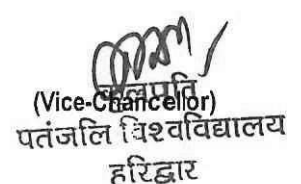 कुलपति
(Vice-Chancellor)
पतंजलि विश्वविद्यालय
हरिद्वार